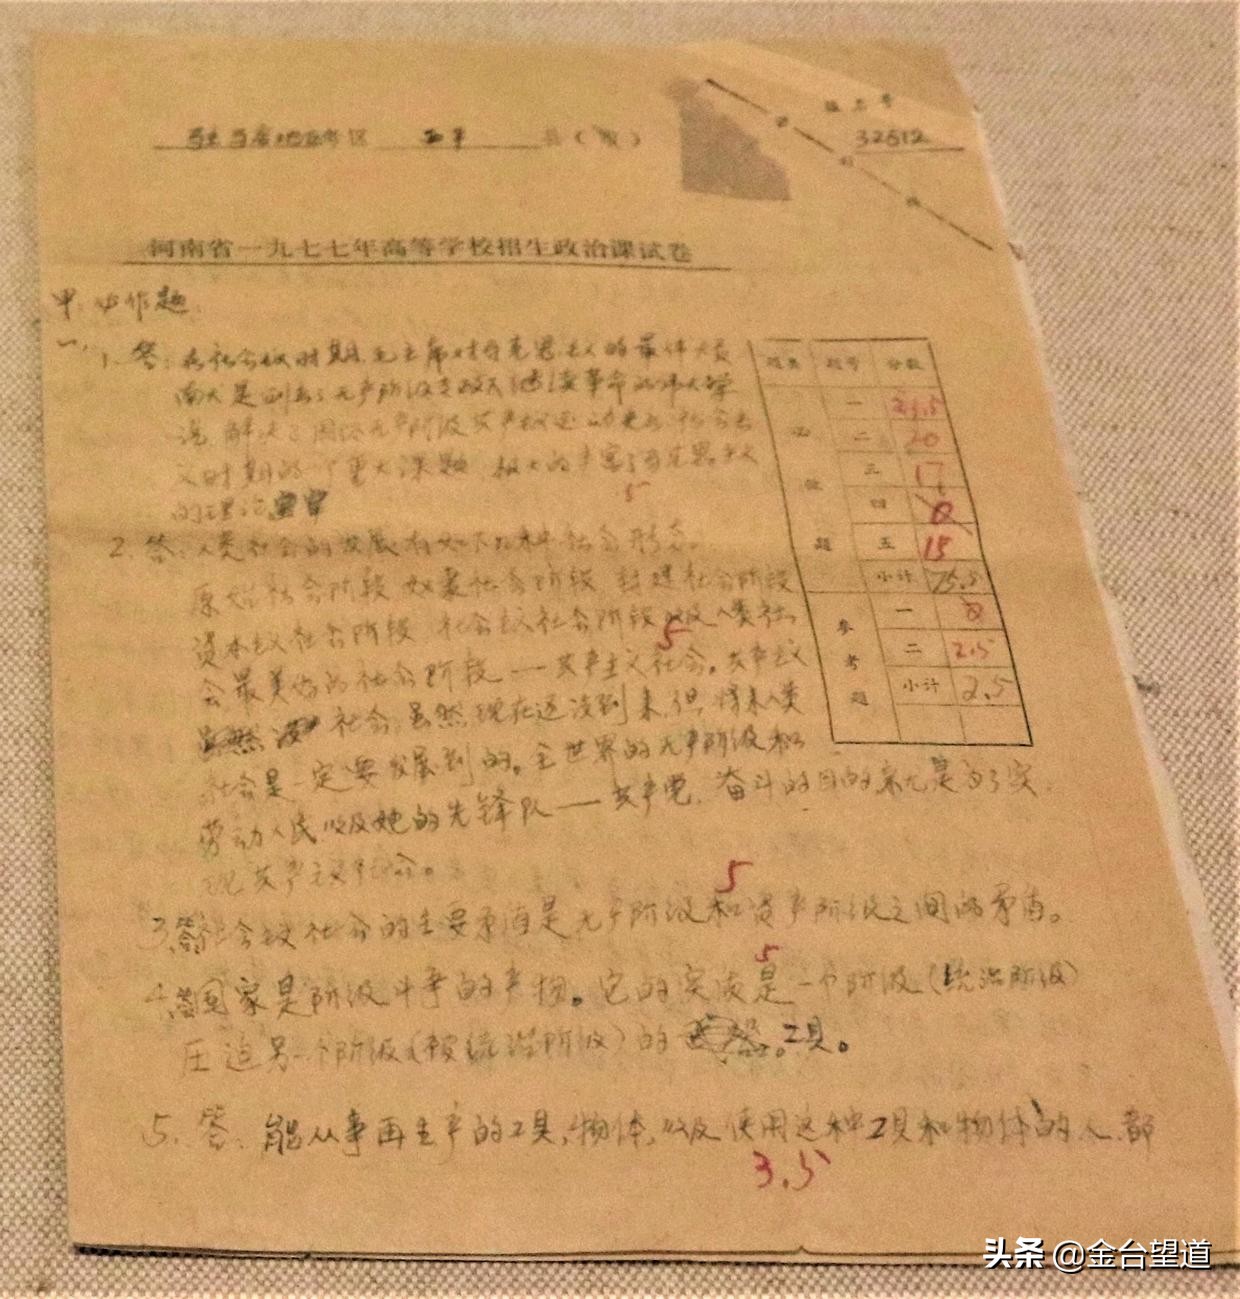 报名号
驻马店地区考区 西平 县（市）
32512
密
封
线
河南省一九七七年高等学校招生政治课试卷
甲、必作题
一、1. 答：在社会主义时期毛主席对马克思主义的最伟大贡
献是创立了无产阶级专政下继续革命的伟大学
说，解决了国际无产阶级共产主义运动史和社会主
义时期的一个重大课题，极大的丰富了马克思主义
的理论
5
2. 答：人类社会的发展有如下几种社会形态。
原始社会阶段 奴隶社会阶段 封建社会阶段
资本主义社会阶段 社会主义社会阶段以及人类社
5
会最美好的社会阶段——共产主义社会。共产主义
社会，虽然现在还没到来，但将来人类
社会是一定要发展到的。全世界的无产阶级和
劳动人民以及她的先锋队——共产党，奋斗的目的就是为了实
现共产主义社会。
5
3. 答：社会主义社会的主要矛盾是无产阶级和资产阶级之间的矛盾。
5
4. 答：国家是阶级斗争的产物。它的实质是一个阶级（统治阶级）
压迫另一个阶级（被统治阶级）的工具。
5. 答：能从事再生产的工具，物体，以及使用这种工具和物体的人，都
3.5
题类 题号 分数
必作题
一
二 20
三 17
四 0
五 15
小计 75.5
参考题
一 0
二 2.5
小计 2.5
头条 @金台望道